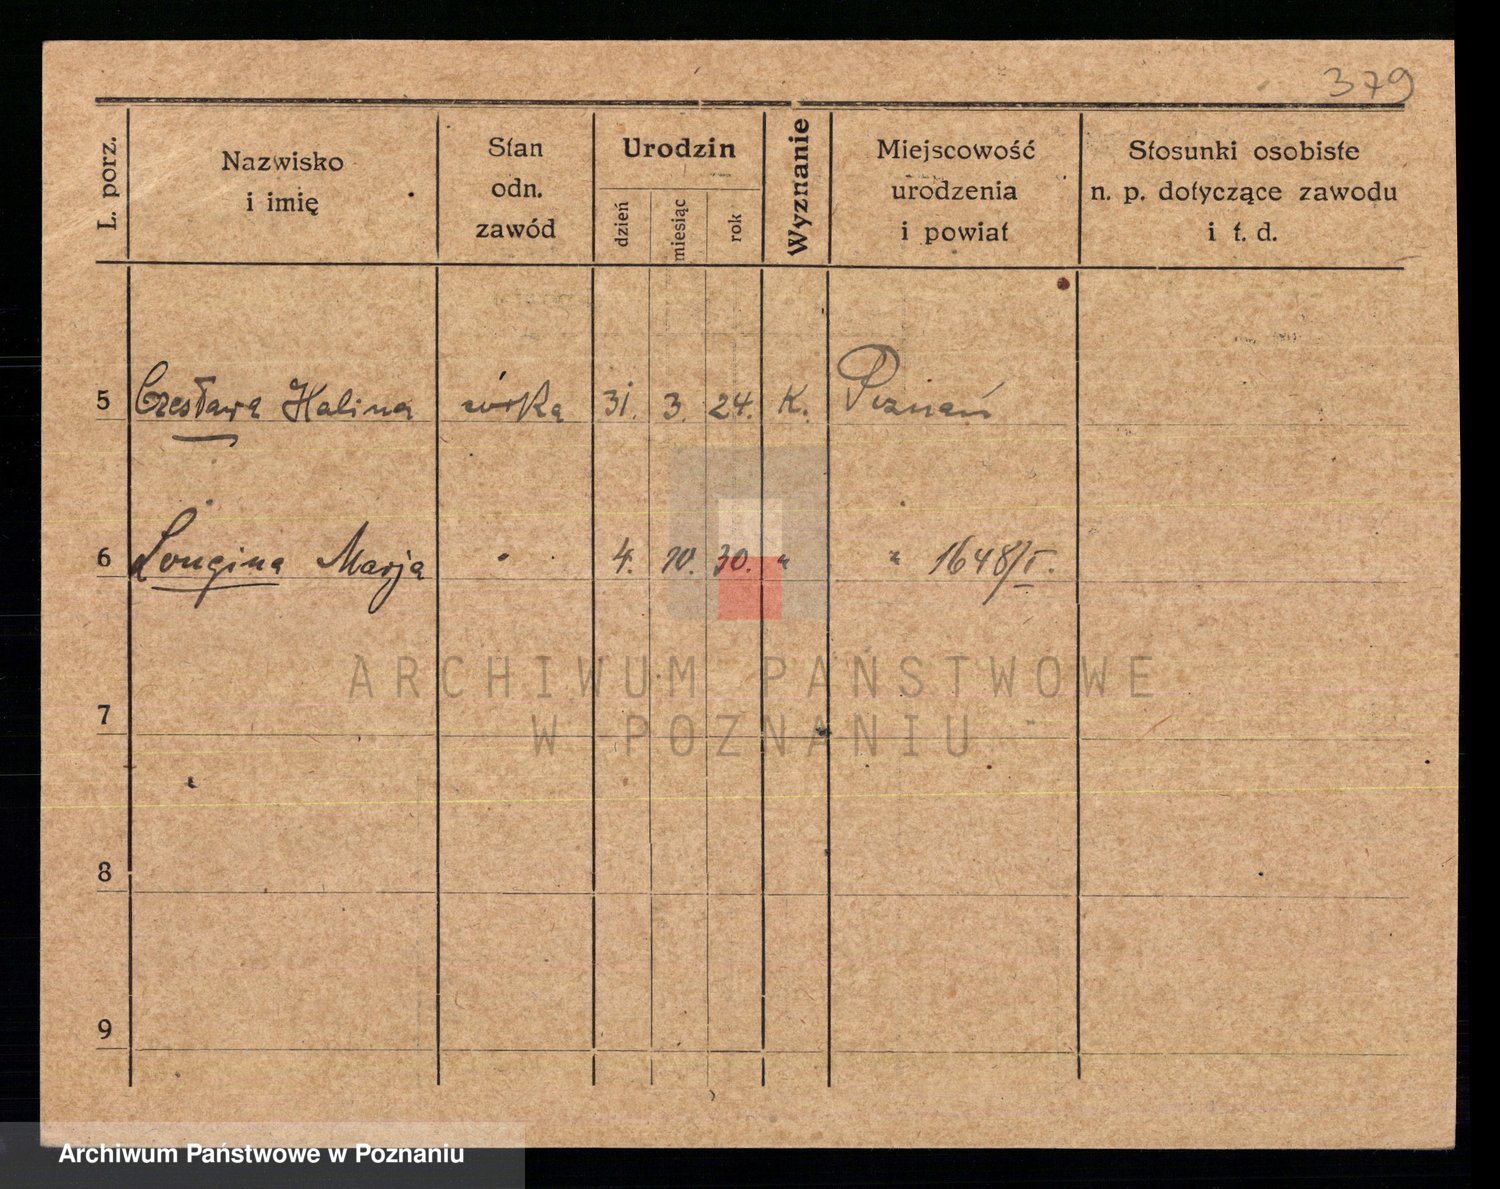 379
L. porz.
Nazwisko
i imię
Stan
odn.
zawód
Urodzin
dzień
miesiąc
rok
Wyznanie
Miejscowość
urodzenia
i powiat
Stosunki osobiste
n. p. dotyczące zawodu
i t. d.
5 Czesława Halina córka 31. 3. 24. K. Poznań
6 Longina Marja " 4. 10. 30. " " 1648/I.
7
8
9
ARCHIWUM PAŃSTWOWE
W POZNANIU
Archiwum Państwowe w Poznaniu